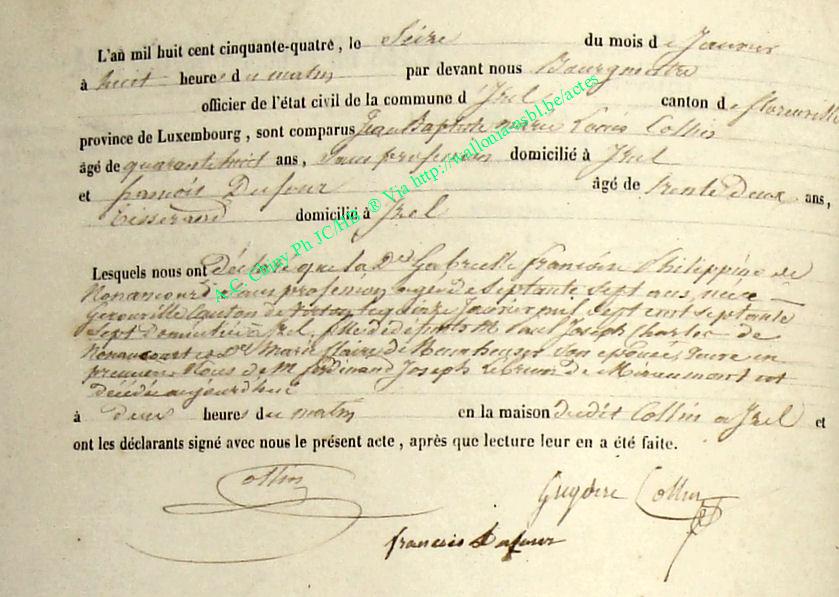 L'an mil huit cent cinquante-quatre, le Seize du mois de Janvier
à huit heures du matin par devant nous Bourgmestre
officier de l'état civil de la commune d'Izel canton de florenville
province de Luxembourg, sont comparus Jean Baptiste Marie Louis Collin
âgé de quarante huit ans, sans profession domicilié à Izel
et francois Dufour âgé de trente deux ans,
tisserand domicilié à Izel
Lesquels nous ont déclaré que la De Gabrielle françoise Philippine de
Nonancourt sans profession agee de septante sept ans, née à
Gerouville Canton de Virton le quinze Janvier mil sept cent septante
sept domiciliée à Izel, fille de défunts M Paul Joseph Charles de
Nonancourt et De Marie Claire de son epouse, veuve en
premiere Noces de Mr ferdinand Joseph Lebrun de Miraumont est
décédée aujourd'hui
à deux heures du matin en la maison dudit Collin à Izel et
ont les déclarants signé avec nous le présent acte, après que lecture leur en a été faite.
Collin
Grégoire Collin
francois Dufour
A.G. Chiny Ph JC/HB ® Via http://wallonia-asbl.be/actes